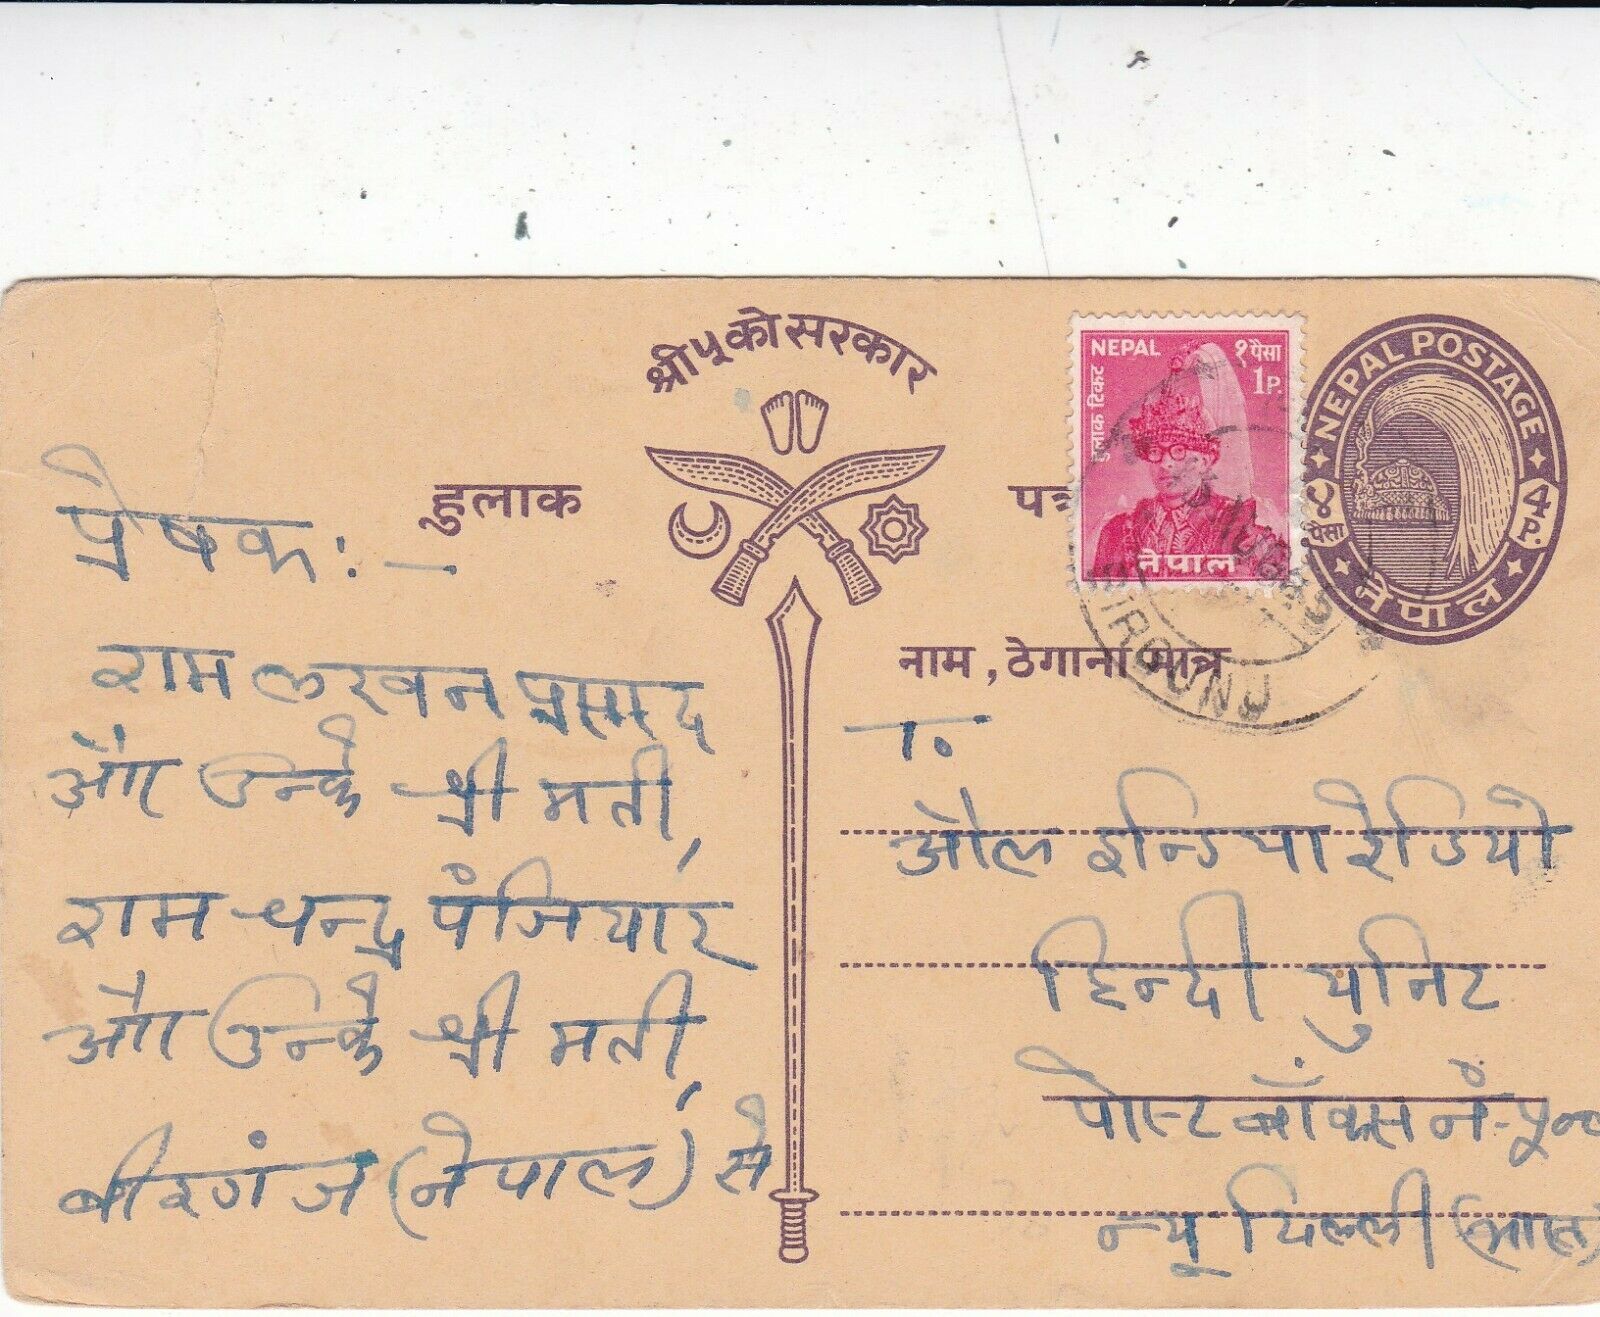 श्री ५ को सरकार
हुलाक पत्र
NEPAL १ पैसा
1P.
हुलाक टिकट
नेपाल
NEPAL POSTAGE
४ पैसा
4 P.
नेपाल
BIRGUNJ
नाम, ठेगाना मात्र
प्रेषक:-
राम लखन प्रसाद
और उन्के श्री मती,
राम चन्द्र पंजियार
और उन्के श्री मती,
बीरगंज (नेपाल) से
T.
औल इन्डिया रेडियो
हिन्दी युनिट
पोस्ट बॉक्स नं-
न्यू दिल्ली (भारत)